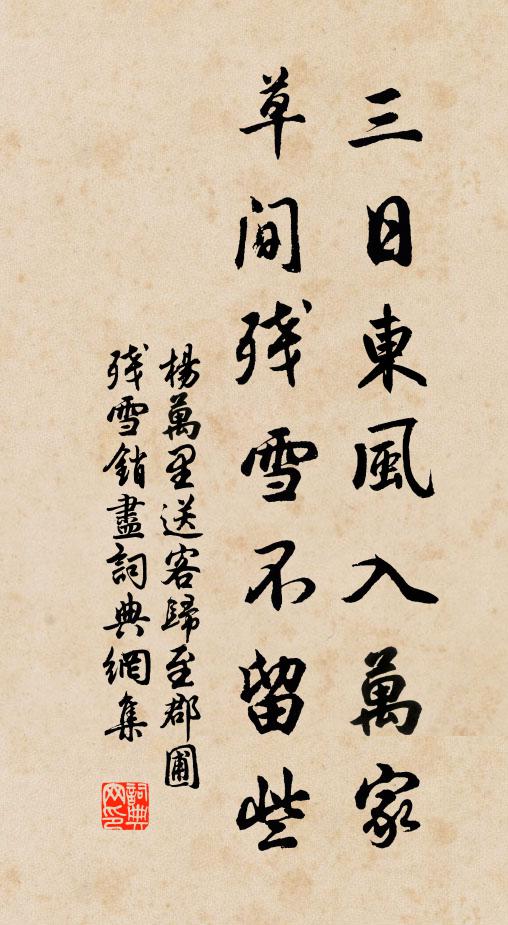 三日東風入萬家
草间残雪不留些
楊萬里送客歸至郡圃
残雪銷盡詞典網集
詞典网印